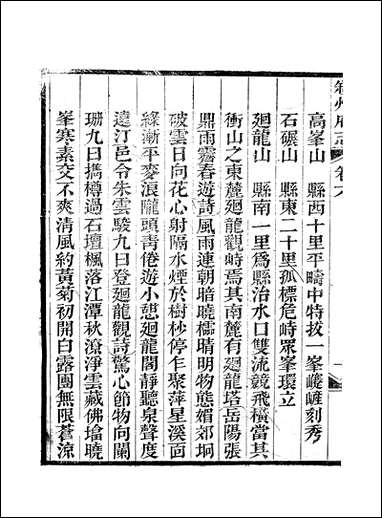 州府志 卷六
高峯山 縣西十里平疇中特拔一峯巉刻秀
石碾山 縣東二十里孤標危峙眾峯環立
廻龍山 縣南一里爲縣治水口雙流競飛橫當其
衝山之東麓廻龍觀峙焉其南麓有廻龍塔岳陽張
鼎雨霽春遊詩風雨連朝暗曉櫺晴明物態媚郊坰
破雲日向花心射隔水煙於樹杪停乍聚萍星溪面
綠漸平麥浪隴頭靑倦遊小憩廻龍閣靜聽泉聲度
遠汀邑令朱雲駿九日登廻龍觀詩驚心節物向闌
珊九日攜樽過石壇楓落江潭秋潦淨雲藏佛塔曉
峯寒素交不爽清風約黃菊初開白露團無限蒼涼